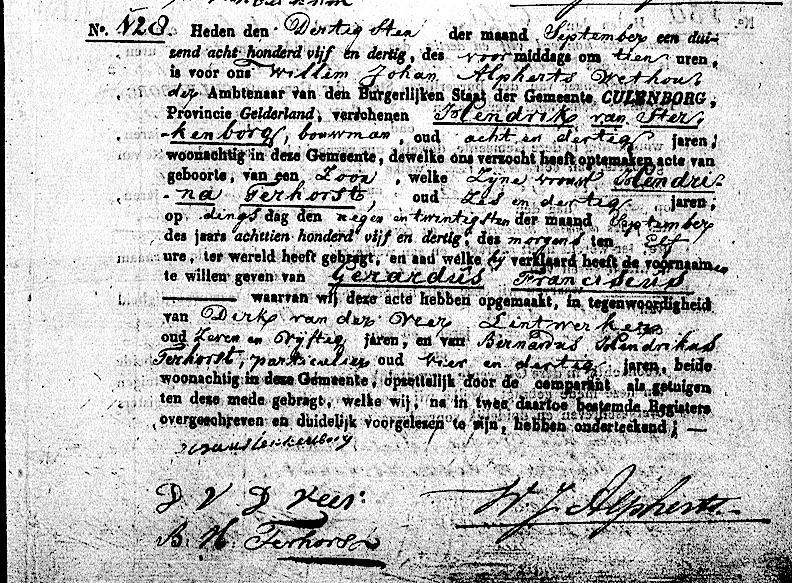 No. 128. Heden den Dertigsten der maand September een dui-
zend acht honderd vijf en dertig, des voormiddags om tien uren,
is voor ons Willem Johan Alpherts Wethou-
der Ambtenaar van den Burgerlijken Staat der Gemeente CULENBORG,
Provincie Gelderland, verschenen Hendrik van Ster-
kenborg, bouwman, oud acht en dertig jaren;
woonachtig in deze Gemeente, dewelke ons verzocht heeft optemaken acte van
geboorte, van een Zoon, welke Zijne vrouw Hendri-
na Terhorst, oud Zes en dertig jaren;
op dingsdag den negen en twintigsten der maand September
des jaars achttien honderd vijf en dertig, des morgens ten Elf
ure, ter wereld heeft gebragt, en aan welke hij verklaard heeft de voornaamen
te willen geven van Gerardus Franciscus
waarvan wij deze acte hebben opgemaakt, in tegenwoordigheid
van Derk van der Veer Lintwerker
oud Zeven en Vijftig jaren, en van Bernardus Hendrikus
Terhorst, particulier oud vier en dertig jaren, beide
woonachtig in deze Gemeente, opzettelijk door de comparant als getuigen
ten deze mede gebragt, welke wij, na in twee daartoe bestemde Registers
overgeschreven en duidelijk voorgelezen te zijn, hebben onderteekend; —
D V D Veer
W J Alpherts
B. H. Terhorst